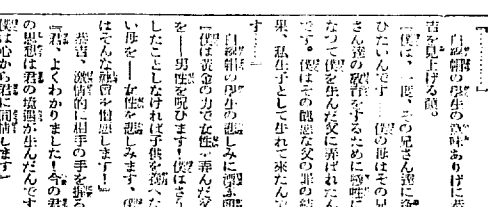 『………』
白線帽の學生の意味ありげに恭
吉を見上げる顏。
『僕は、一度、その兄さん達に逢
ひたいんです……僕の母はその兄
さん達の敎育をするために犠牲に
なつて僕を生んだ父に弄ばれたん
です。僕はその醜惡な父の罪の結
果、私生子として生れて來たんで
す……』
白線帽の學生の悲しみに漂ふ顏
『僕は黄金の力で女性を弄んだ父
を――男性を呪ひます!僕はさう
したことしなければ子供を養へな
い母を――女性を悲しみます、僕
はそんな社會を憎惡します!』
恭吉、激情的に相手の手を握る
『君、よくわかりました!今の君
の思想は君の境遇が生んだんです
僕は心から君に同情します』